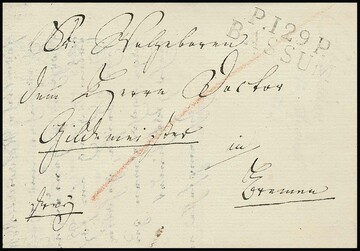 P.129.P.
BASSUM
Sr. Wolgeboren
dem Herrn Doctor
Gildemeister
in
Bremen